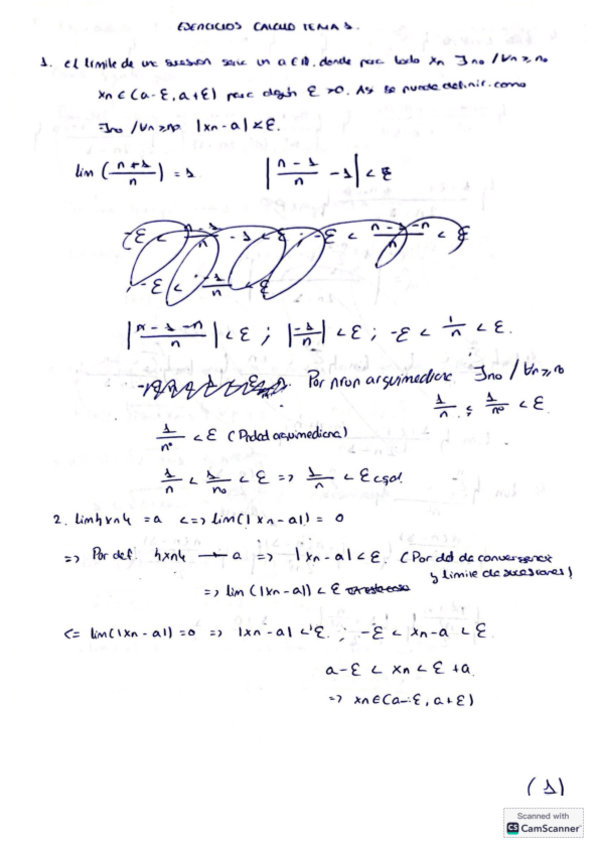 EJERCICIOS CALCULO TEMA 1.
1. El limite de una sucesion seria un a ∈ ℝ, donde para todo xn ∃no / ∀n ≥ no
xn ∈ (a-ε, a+ε) para algún ε >0. Asi se puede definir como
∃no / ∀n ≥ no |xn - a| < ε.
lim (n+1/n) = 1 |n-1/n - 1| < ε
-ε < n-1/n - 1 < ε ; -ε < n-1-n/n < ε
; -ε < -1/n < ε
|n-1-n/n| < ε ; |-1/n| < ε ; -ε < 1/n < ε.
Por arquimediana ∃no / ∀n ≥ no
1/n ≤ 1/no < ε
1/no < ε (Prdad arquimediana)
1/n < 1/no < ε => 1/n < ε cqd.
2. lim{xn} = a <=> lim(|xn - a|) = 0
=> Por def. {xn} → a => |xn - a| < ε. (Por def de convergencia
y limite de sucesiones)
=> lim (|xn - a|) < ε
<= lim(|xn - a|) = 0 => |xn - a| < ε. ; -ε < xn - a < ε.
a - ε < xn < ε + a
=> xn ∈ (a-ε, a+ε)
(1)
Scanned with
CS CamScanner